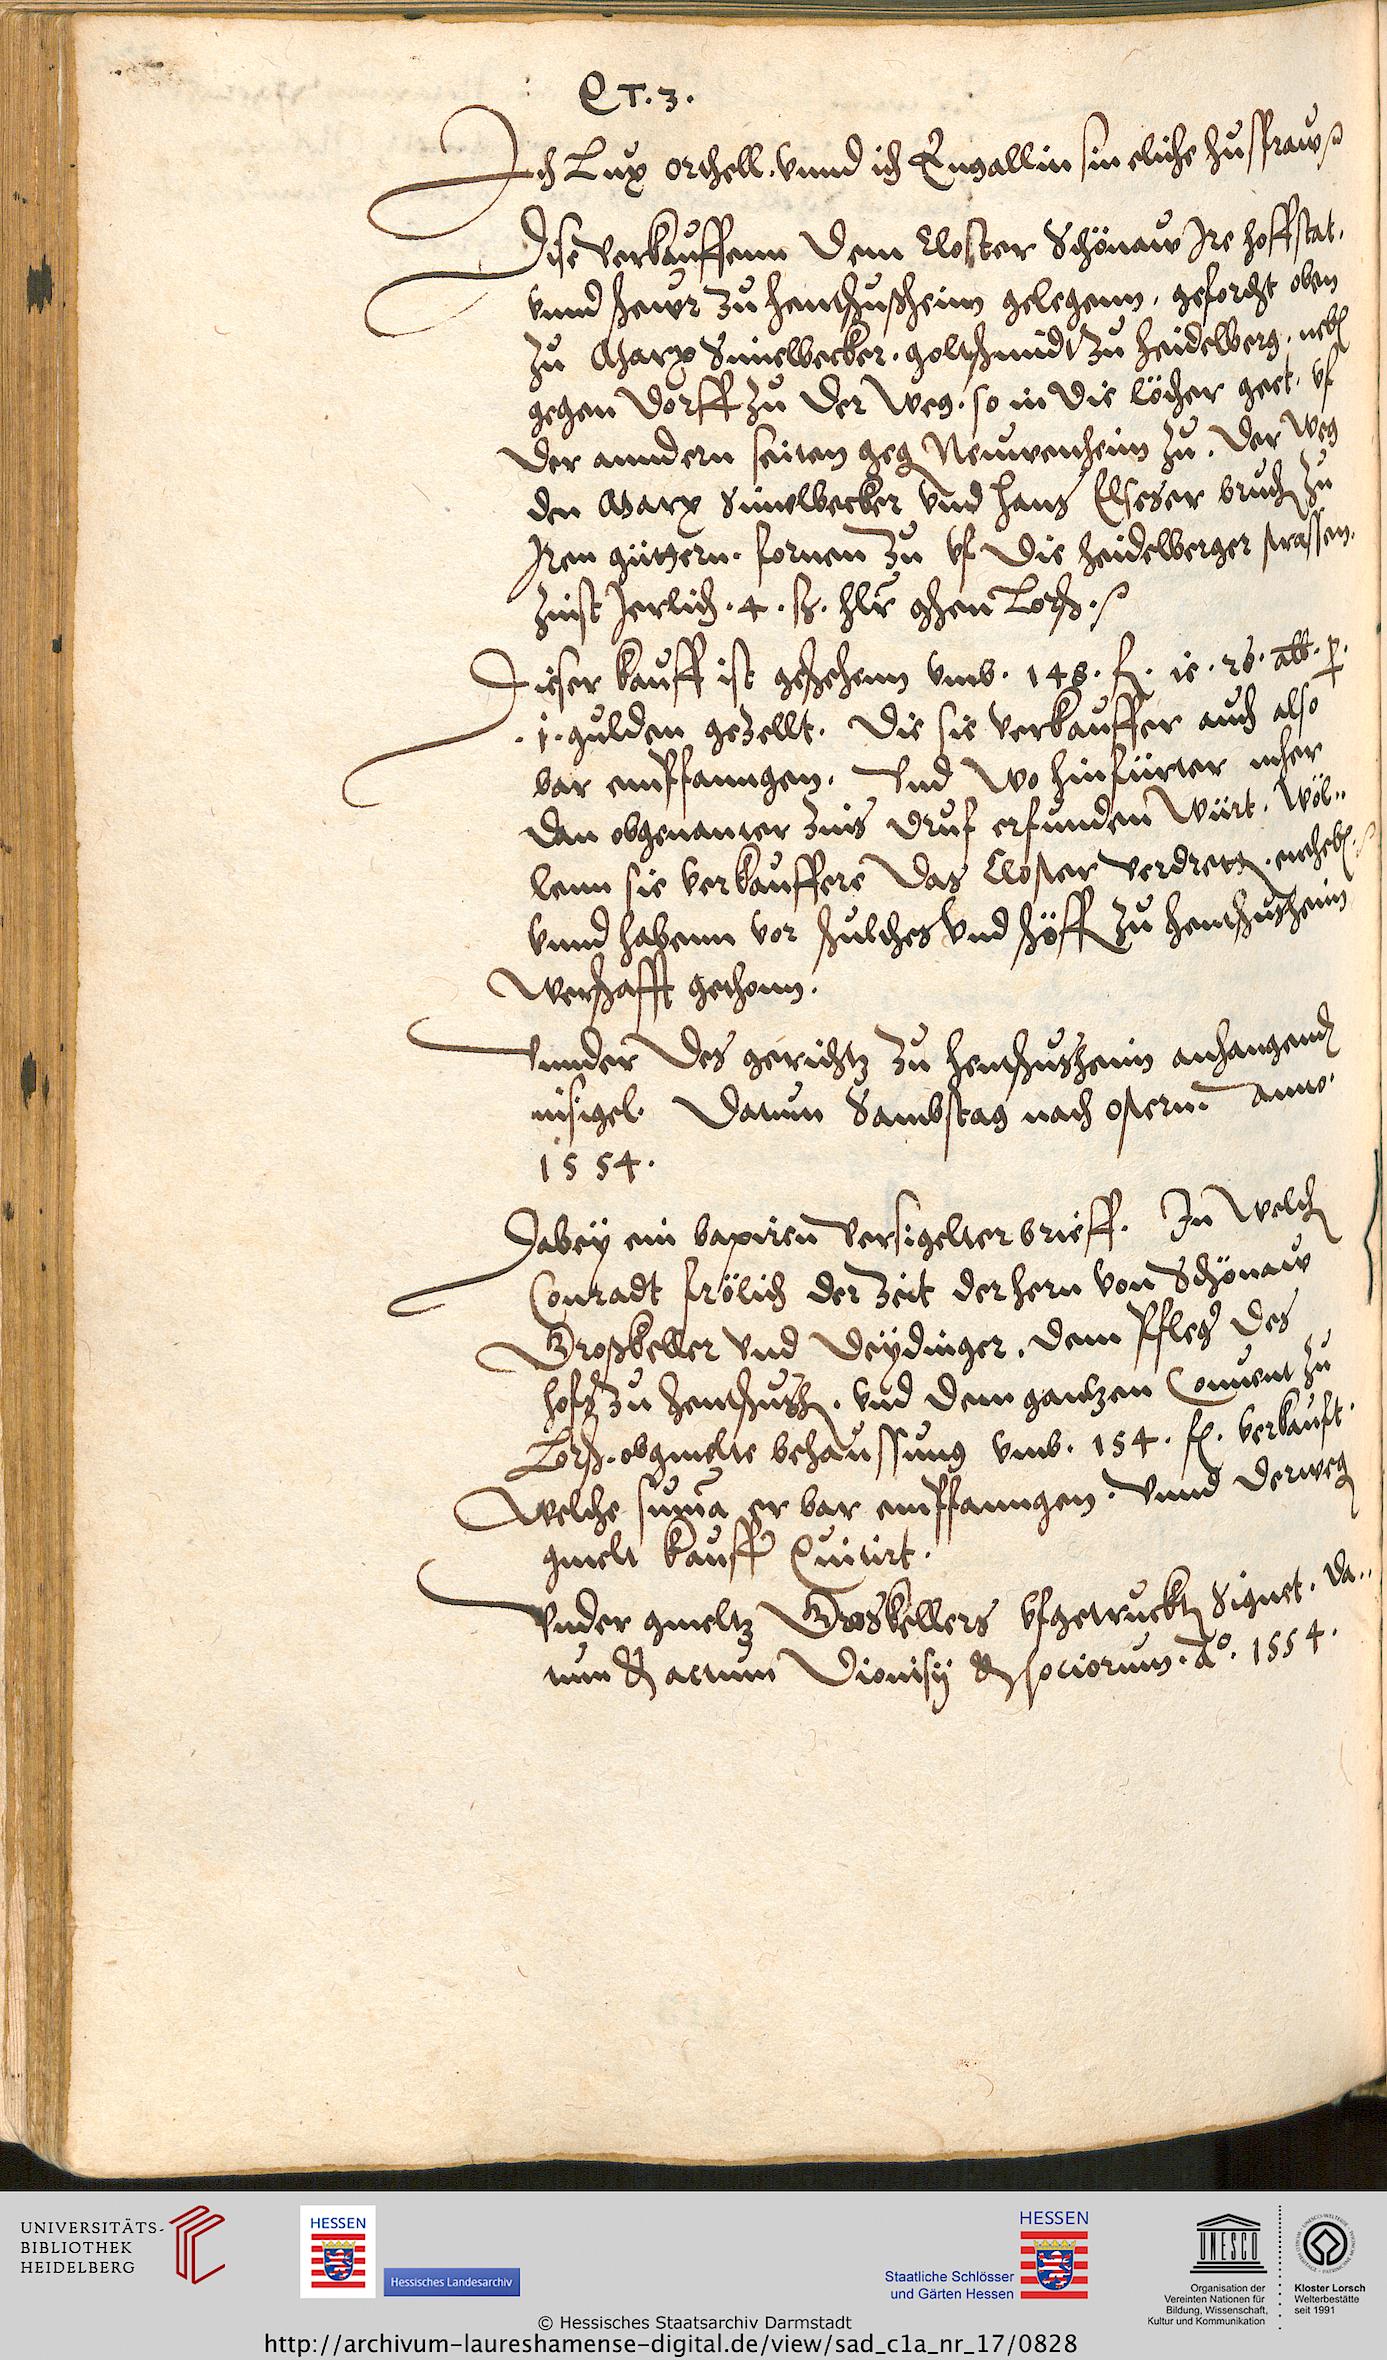 Q T. 3.
Ich Lux Orthell. vnnd ich Engallin sin eliche husfraw
Dise verkauffenn dem Closter Schönaw Ire hoffstat.
vnnd schewr zu henthsußheim gelegenn. geforcht oben
zu Marx Simelbecker. goltschmidt zu heidelberg. neben
gegen dorff zu der weg. so in die löcher geet. vf
der anndern seiten gegen Neuwenheim zu. der weg
den Marx Simelbecker vnd hans Elseser bruchen zu
Iren güttern. fornen zu vf die heidelberger strassen.
zinst Jerlich. 4. ß. hlr ghen Lorsch.
Dieser kauff ist geschehenn vmb. 148. fl. ie. 26. alb. p.
.i. gulden gezellt. die sie verkauffer auch also
bar empfanngen. Vnd wo hinfürter mher
dan obgenanter zins druf erfunden würt. wöl..
lenn sie verkauffere das Closter verdretten. entheben.
vnnd habenn vor schulches vnd schöffen zu henthsußheim
werschafft gethonn.
Vnnder des gerichtz zu henthsußheim anhangenden
insigel. Datum Sambstag nach osternn anno.
1554.
Dabey ein bapiren versigelter brieff. In welchen
Conradt frölich der zeit der hern von Schönaw
Großkeller vnd deydinger. dem Pfleger des
hofs zu henthsußheim. vnd dem gantzen Conuent zu
Lorsch. obgmelte behaussung vmb. 154. fl. verkauft.
welche suma er bar empfanngen. vnnd derwegen
gmelt kauffer Quitirt.
Vnder gmeltz Groskellers vfgetruckten Signet. Da..
tum & actum Dionisy & sociorum. Ao. 1554.
UNIVERSITÄTS-
BIBLIOTHEK
HEIDELBERG
HESSEN
Hessisches Landesarchiv
HESSEN
Staatliche Schlösser
und Gärten Hessen
UNESCO
Organisation der
Vereinten Nationen für
Bildung, Wissenschaft,
Kultur und Kommunikation
Kloster Lorsch
Welterbestätte
seit 1991
© Hessisches Staatsarchiv Darmstadt
http://archivum-laureshamense-digital.de/view/sad_c1a_nr_17/0828